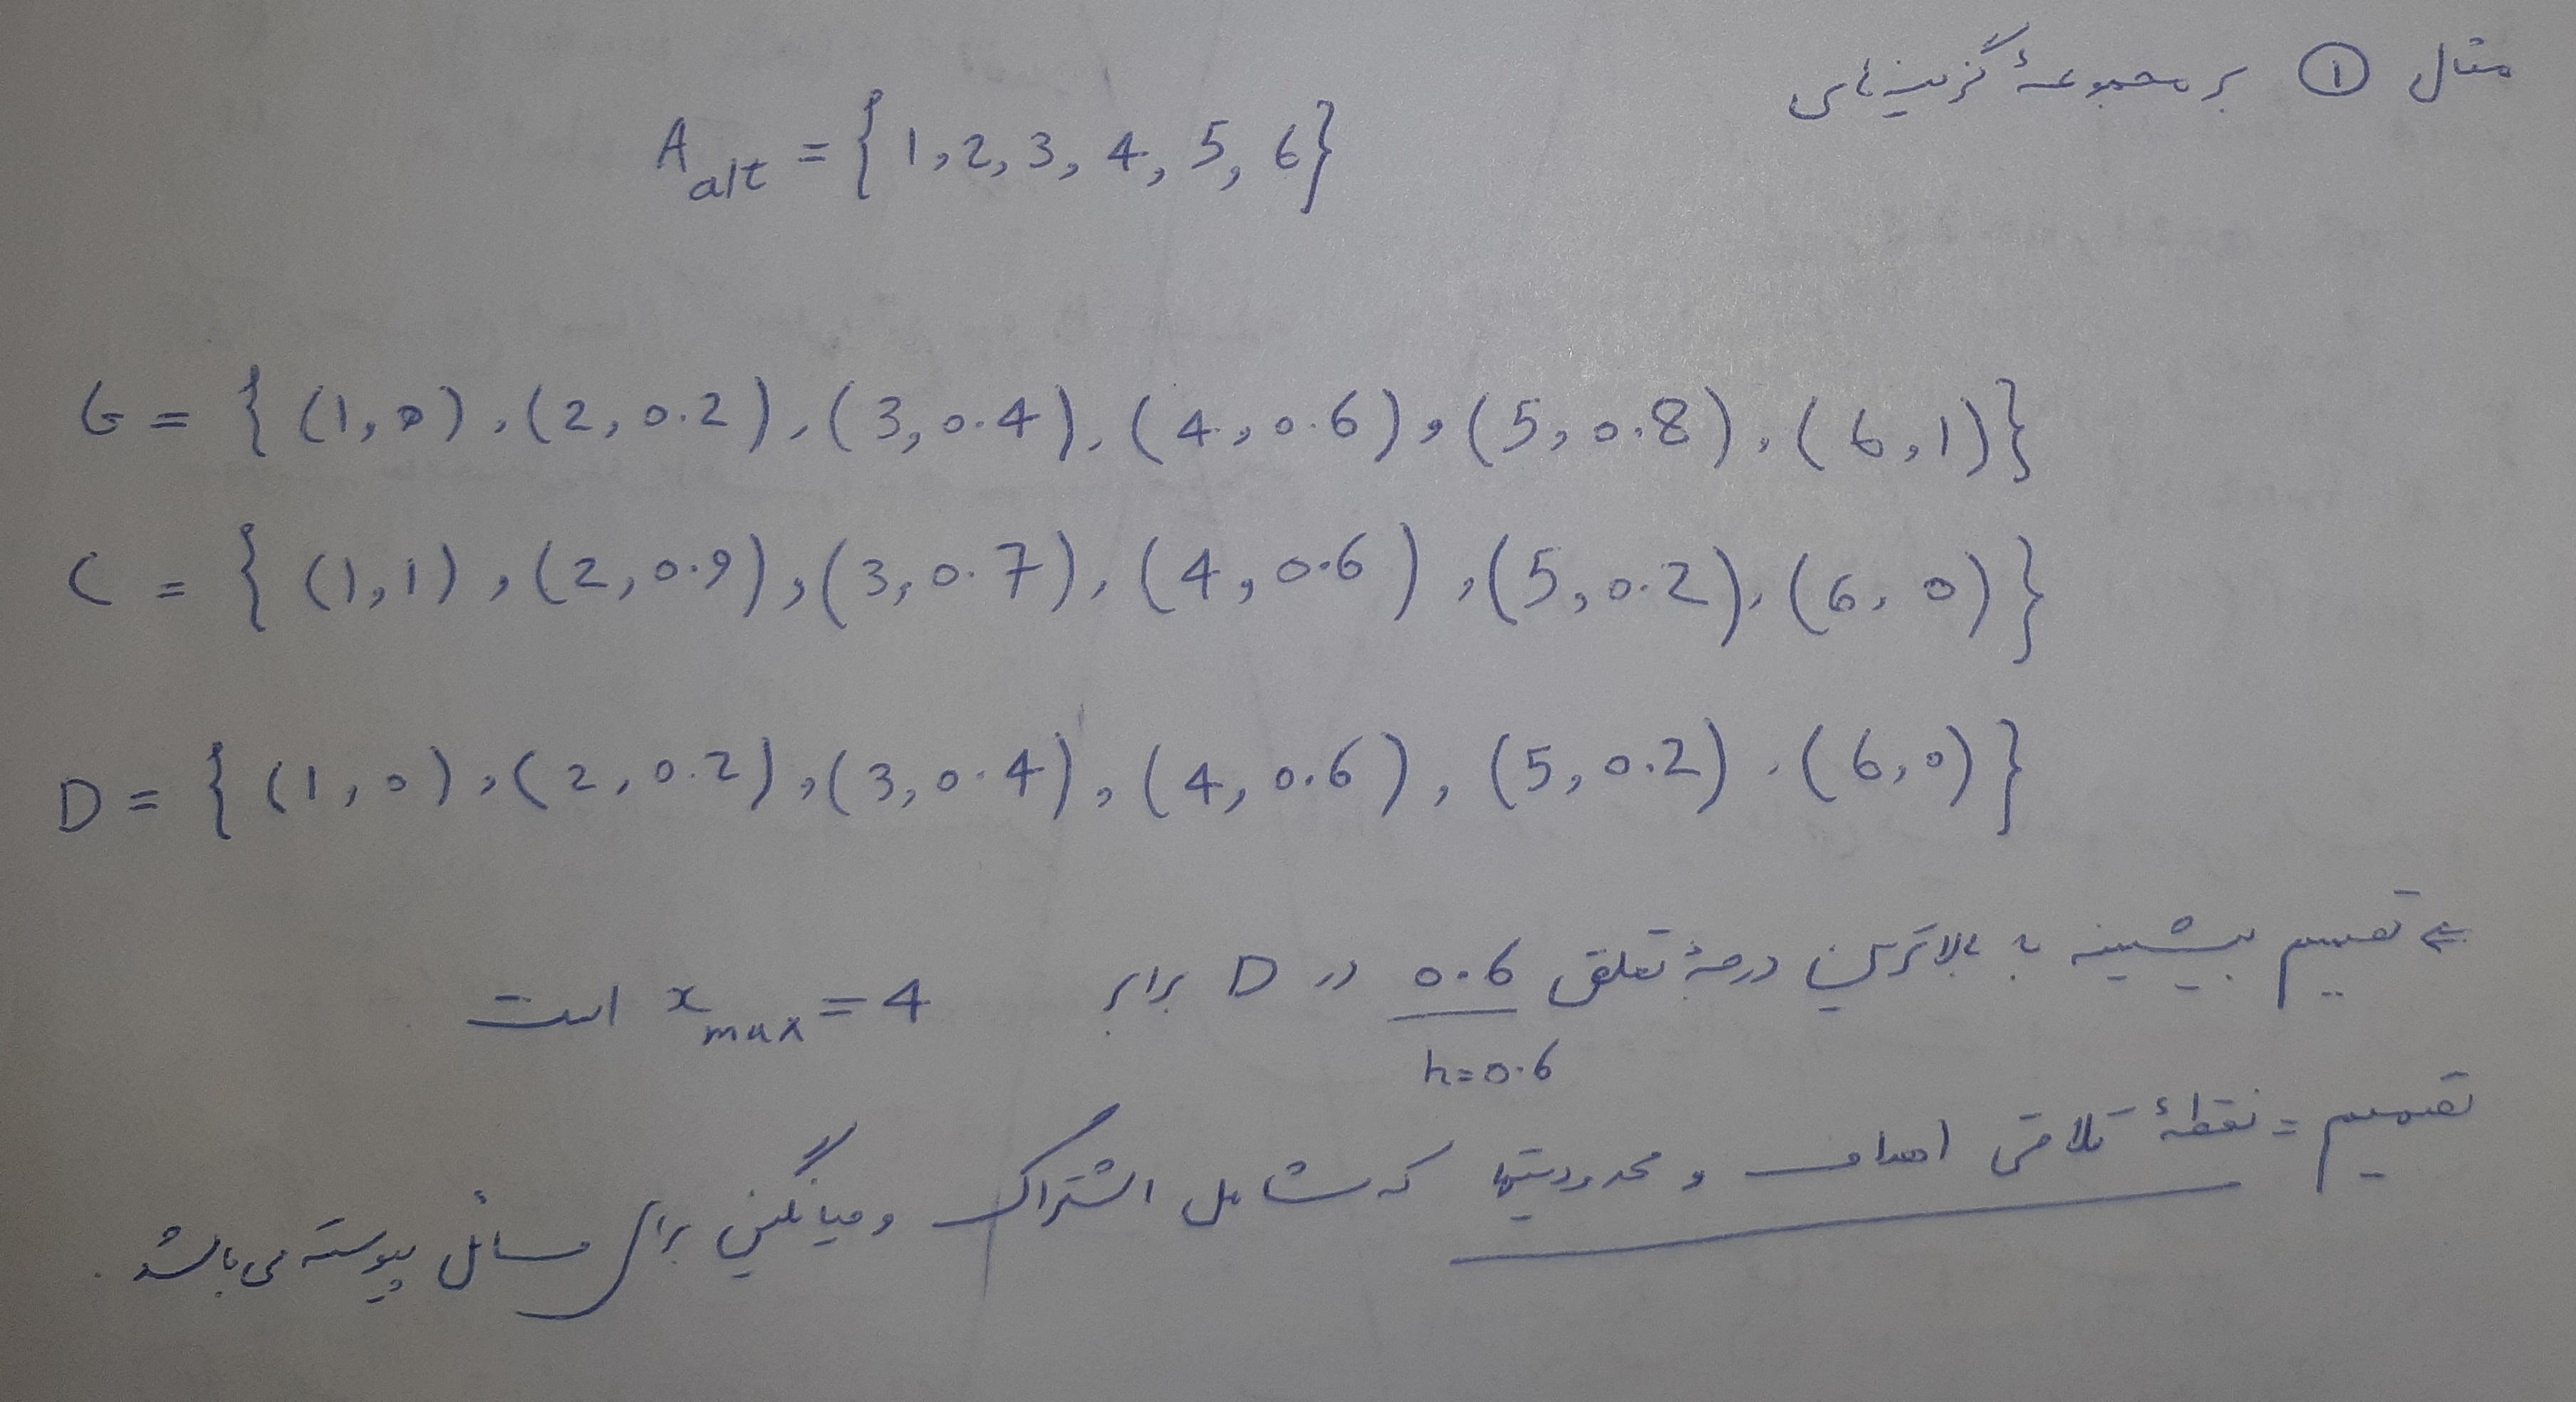 مثال ① بر مجموعهٔ گزینه‌های
A_alt = {1, 2, 3, 4, 5, 6}
G = {(1, 0), (2, 0.2), (3, 0.4), (4, 0.6), (5, 0.8), (6, 1)}
C = {(1, 1), (2, 0.9), (3, 0.7), (4, 0.6), (5, 0.2), (6, 0)}
D = {(1, 0), (2, 0.2), (3, 0.4), (4, 0.6), (5, 0.2), (6, 0)}
⇐ تصمیم بیشینه با بالاترین درجهٔ تعلق 0.6 در D برابر x_max = 4 است
h=0.6
تصمیم = نقطهٔ تلاقی اهداف و محدودیتها که شامل اشتراک و میانگین برای مسائل پیوسته می‌باشد.